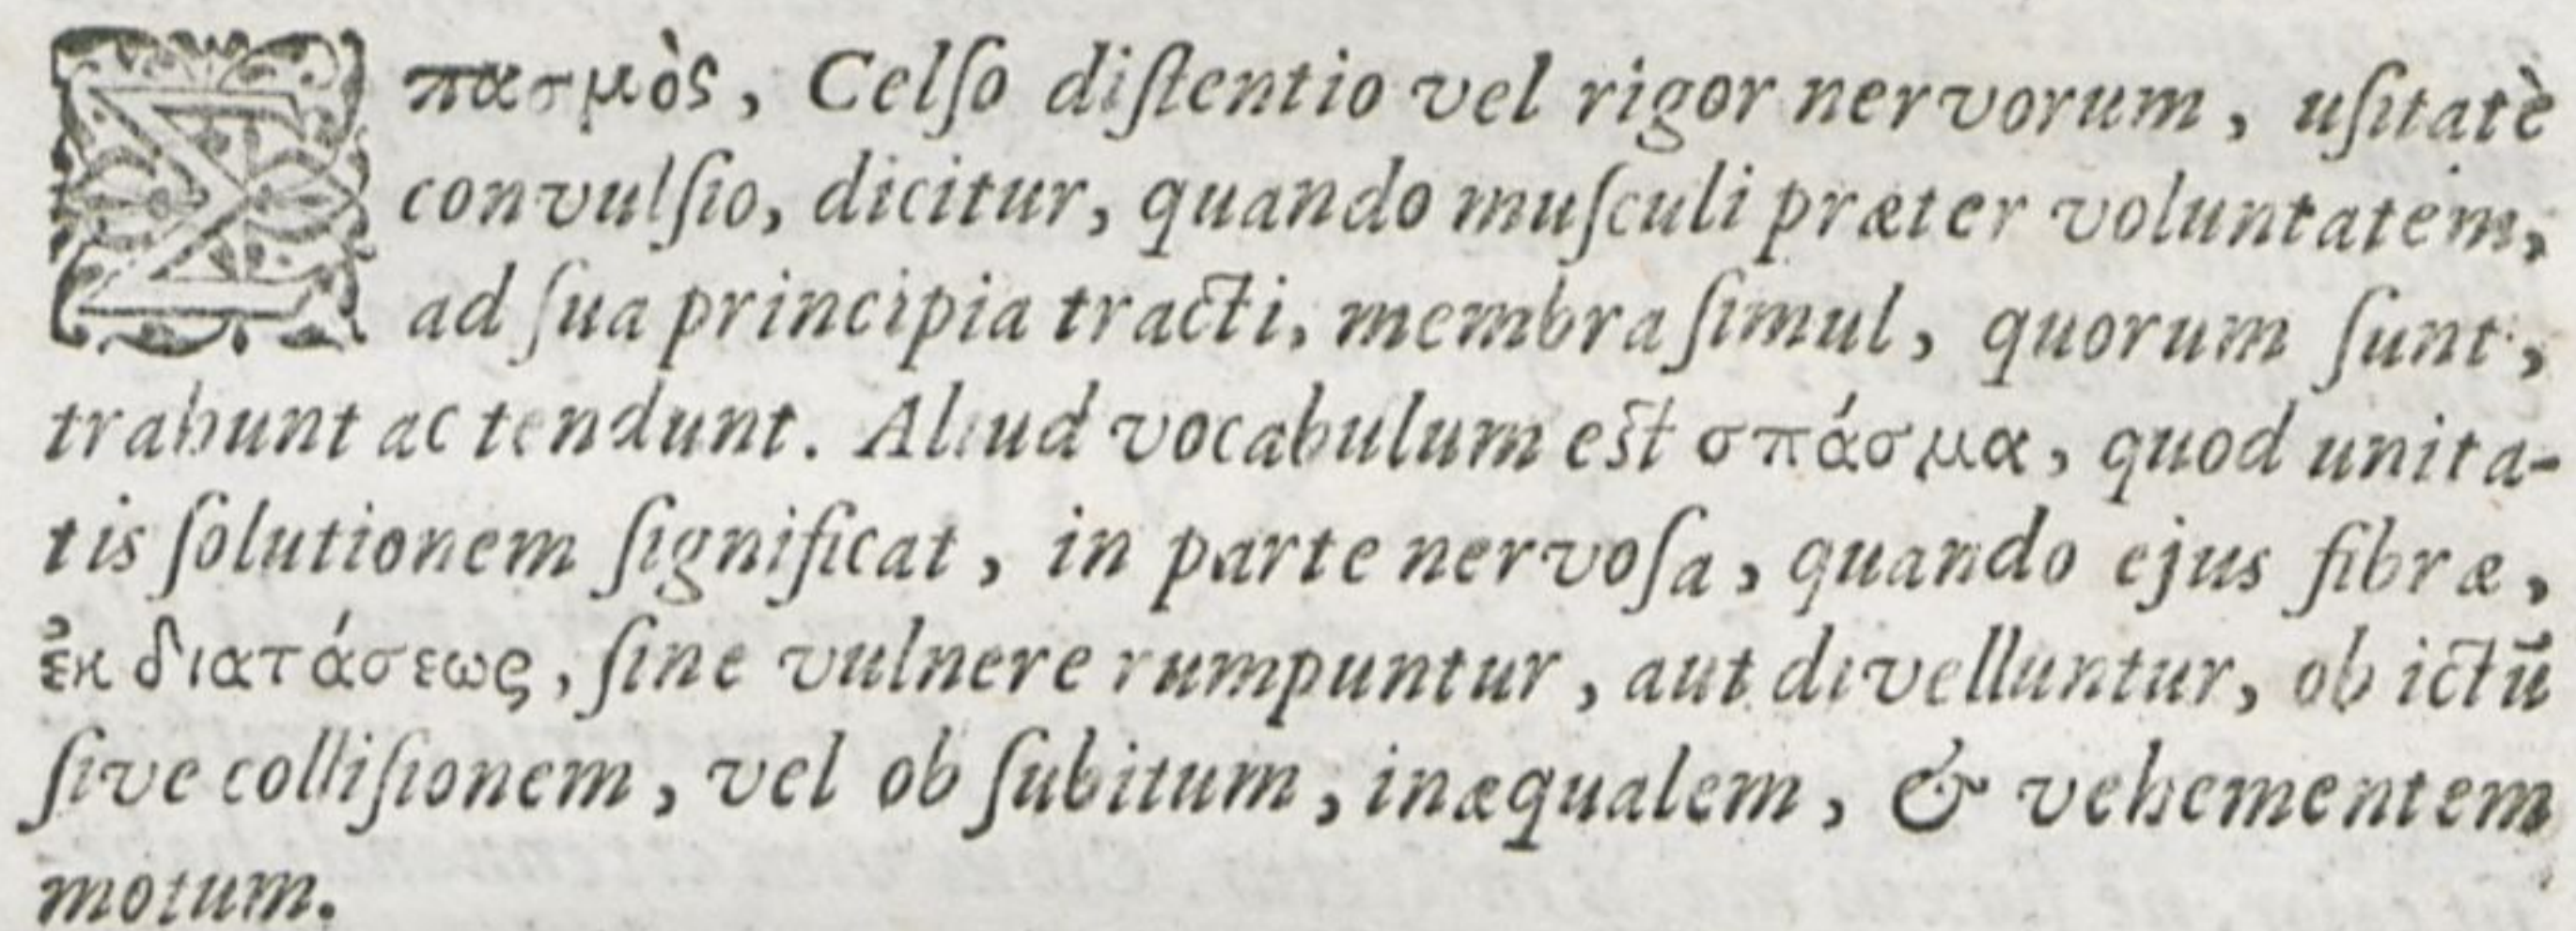 Σπασμὸς, Celſo diſtentio vel rigor nervorum, uſitatè
convulſio, dicitur, quando muſculi præter voluntatem,
ad ſua principia tracti, membra ſimul, quorum ſunt,
trahunt ac tendunt. Aliud vocabulum eſt σπάσμα, quod unita-
tis ſolutionem ſignificat, in parte nervoſa, quando ejus fibræ,
ἐκ διατάσεως, ſine vulnere rumpuntur, aut divelluntur, ob ictū
ſive colliſionem, vel ob ſubitum, inæqualem, & vehementem
motum.